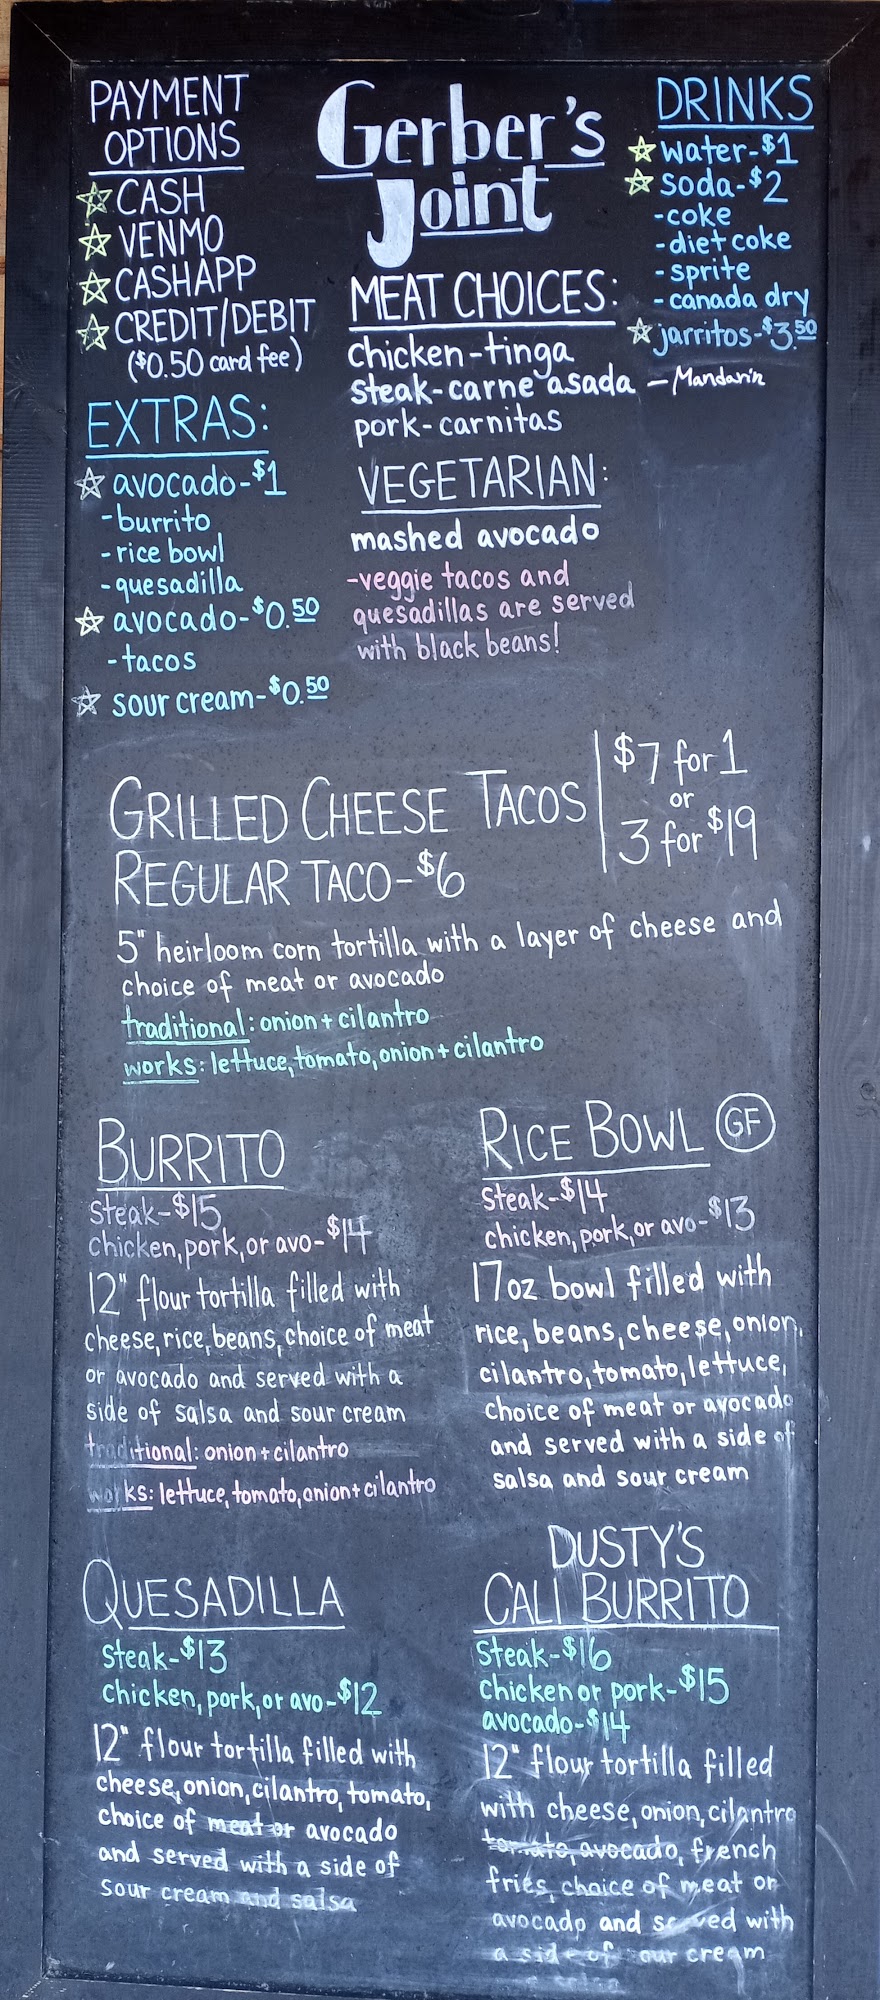 PAYMENT
OPTIONS
CASH
VENMO
CASHAPP
CREDIT/DEBIT
($0.50 card fee)
EXTRAS:
avocado-$1
-burrito
-rice bowl
-quesadilla
avocado-$0.50
-tacos
sour cream-$0.50
Gerber's
Joint
MEAT CHOICES:
chicken-tinga
steak-carne asada
pork-carnitas
VEGETARIAN:
mashed avocado
-veggie tacos and
quesadillas are served
with black beans!
DRINKS
water-$1
soda-$2
-coke
-diet coke
-sprite
-canada dry
jarritos-$3.50
-Mandarin
GRILLED CHEESE TACOS
$7 for 1
or
3 for $19
REGULAR TACO-$6
5" heirloom corn tortilla with a layer of cheese and
choice of meat or avocado
traditional: onion + cilantro
works: lettuce, tomato, onion + cilantro
BURRITO
steak-$15
chicken, pork, or avo-$14
12" flour tortilla filled with
cheese, rice, beans, choice of meat
or avocado and served with a
side of salsa and sour cream
traditional: onion + cilantro
works: lettuce, tomato, onion + cilantro
RICE BOWL GF
steak-$14
chicken, pork, or avo-$13
17oz bowl filled with
rice, beans, cheese, onion,
cilantro, tomato, lettuce,
choice of meat or avocado
and served with a side of
salsa and sour cream
QUESADILLA
steak-$13
chicken, pork, or avo-$12
12" flour tortilla filled with
cheese, onion, cilantro, tomato,
choice of meat or avocado
and served with a side of
sour cream and salsa
DUSTY'S
CALI BURRITO
steak-$16
chicken or pork-$15
avocado-$14
12" flour tortilla filled
with cheese, onion, cilantro
tomato, avocado, french
fries, choice of meat or
avocado and served with
a side of sour cream